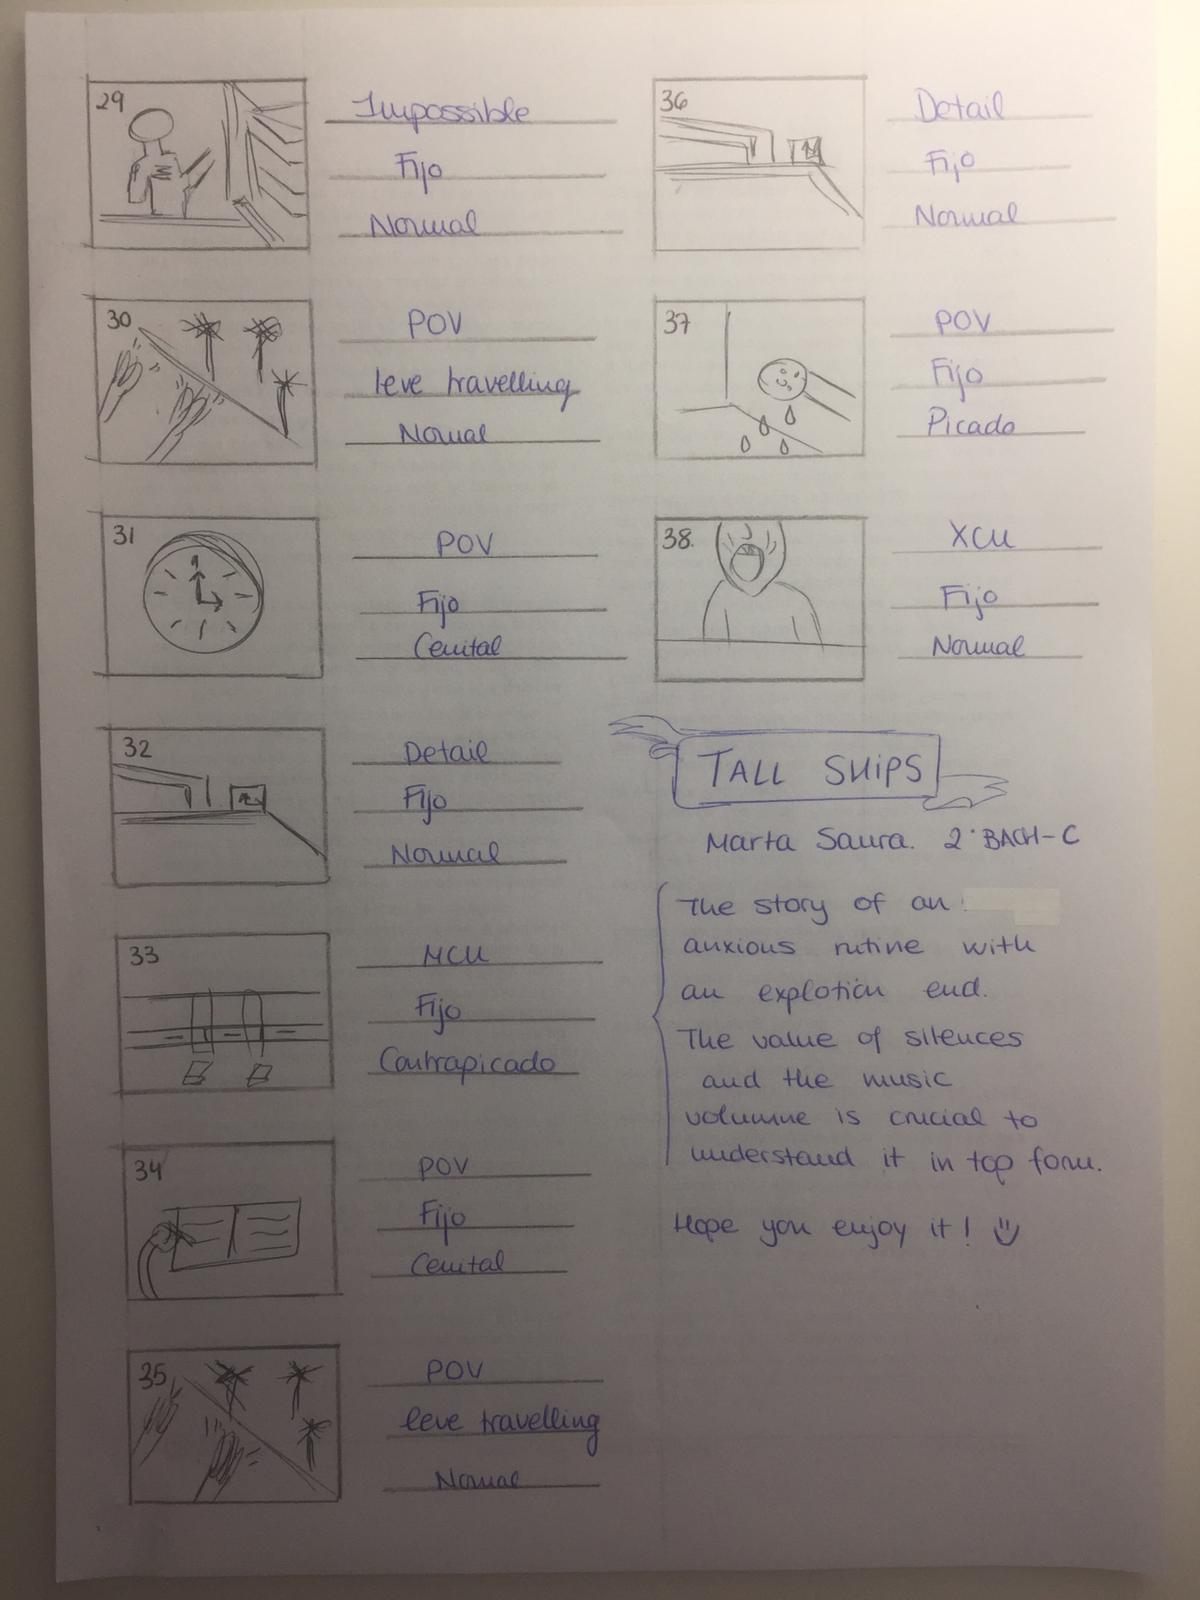 29
Impossible
Fijo
Normal
30
POV
leve travelling
Normal
31
POV
Fijo
Cenital
32
Detail
Fijo
Normal
33
MCU
Fijo
Contrapicado
34
POV
Fijo
Cenital
35
POV
leve travelling
Normal
36
Detail
Fijo
Normal
37
POV
Fijo
Picado
38.
XCU
Fijo
Normal
TALL SHIPS
Marta Saura. 2º BACH-C
The story of an
anxious rutine with
an explotion end.
The value of silences
and the music
volumne is crucial to
understand it in top form.
Hope you enjoy it!